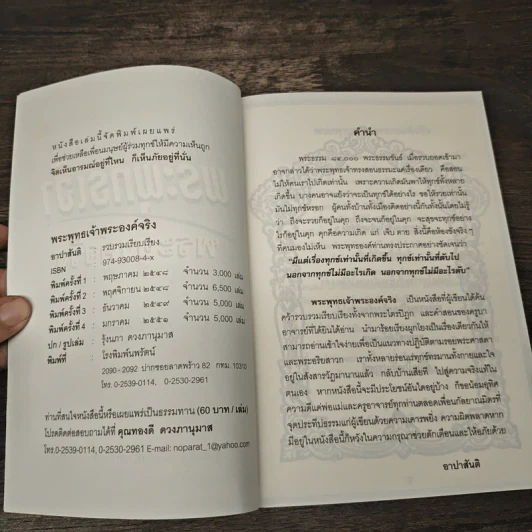 หนังสือเล่มนี้จัดพิมพ์เผยแพร่
เพื่อช่วยเหลือเพื่อนมนุษย์ผู้ร่วมทุกข์ให้มีความเห็นถูก
จิตเห็นอารมณ์อยู่ที่ไหน ก็เห็นภัยอยู่ที่นั่น
พระพุทธเจ้าพระองค์จริง
อาปาสันติ รวบรวมเรียบเรียง
ISBN 974-93008-4-x
พิมพ์ครั้งที่ 1 : พฤษภาคม ๒๕๔๘ จำนวน 3,000 เล่ม
พิมพ์ครั้งที่ 2 : พฤศจิกายน ๒๕๔๘ จำนวน 6,500 เล่ม
พิมพ์ครั้งที่ 3 : ธันวาคม ๒๕๔๙ จำนวน 5,000 เล่ม
พิมพ์ครั้งที่ 4 : มกราคม ๒๕๕๑ จำนวน 5,000 เล่ม
ปก / รูปเล่ม : รุ้งนภา ดวงภานุมาส
พิมพ์ที่ : โรงพิมพ์นพรัตน์
2090 - 2092 ปากซอยลาดพร้าว 82 กทม. 10310
โทร. 0-2539-0114, 0-2530-2961
ท่านที่สนใจหนังสือนี้หรือเผยแพร่เป็นธรรมทาน (60 บาท / เล่ม)
โปรดติดต่อสอบถามได้ที่ คุณทองดี ดวงภานุมาส
โทร.0-2539-0114, 0-2530-2961 E-mail: noparat_1@yahoo.com
คำนำ
พระธรรม ๘๔,๐๐๐ พระธรรมขันธ์ เมื่อรวบยอดเข้ามา
อาจกล่าวได้ว่าพระพุทธเจ้าทรงสอนธรรมะแค่เรื่องเดียว คือสอน
ไม่ให้คนเราไปเกิดเท่านั้น เพราะความเกิดมันพาให้ทุกข์ทั้งหลาย
เกิดขึ้น บางคนอาจแย้งว่าจะเป็นทุกข์ได้อย่างไร ขอให้รวยเท่านั้น
มันไม่ทุกข์หรอก ผู้คนทั้งบ้านทั้งเมืองคิดอย่างนี้กันทั้งนั้นโดยไม่รู้
ว่า ถึงจะรวยก็อยู่ในคุก ถึงจะจนก็อยู่ในคุก จะสุขจะทุกข์อย่าง
ไรก็อยู่ในคุก คุกคือความเกิด แก่ เจ็บ ตาย สิ่งนี้คือห้องขังจริงๆ
ที่คนมองไม่เห็น พระพุทธองค์ท่านทรงประกาศอย่างชัดเจนว่า
"มีแต่เรื่องทุกข์เท่านั้นที่เกิดขึ้น ทุกข์เท่านั้นที่ดับไป
นอกจากทุกข์ไม่มีอะไรเกิด นอกจากทุกข์ไม่มีอะไรดับ"
พระพุทธเจ้าพระองค์จริง เป็นหนังสือที่ผู้เขียนได้ค้น
คว้ารวบรวมเรียบเรียงทั้งจากพระไตรปิฎก และคำสอนของครูบา
อาจารย์ที่ได้ยินได้อ่าน นำมาร้อยเรียงผูกโยงเป็นเรื่องเดียวกันให้
สามารถอ่านเข้าใจง่ายเพื่อเป็นแนวทางปฏิบัติตามรอยพระศาสดา
และพระอริยสาวก เราทั้งหลายร่อนเร่ทุกข์ทรมานทั้งกายและใจ
อยู่ในสังสารวัฏมานานแล้ว กลับบ้านเสียที ไปสู่ความจริงแท้ใน
ตนเอง หากหนังสือนี้จะมีประโยชน์อันใดอยู่บ้าง ก็ขอน้อมอุทิศ
ความดีแด่พ่อแม่และครูอาจารย์ทุกท่านตลอดเพื่อนกัลยาณมิตรที่
จุดประทีปธรรมแก่ผู้เขียนด้วยความเคารพยิ่ง ความผิดพลาดหาก
มีอยู่ในหนังสือนี้ก็หวังในความกรุณาช่วยตักเตือนและให้อภัยด้วย
อาปาสันติ